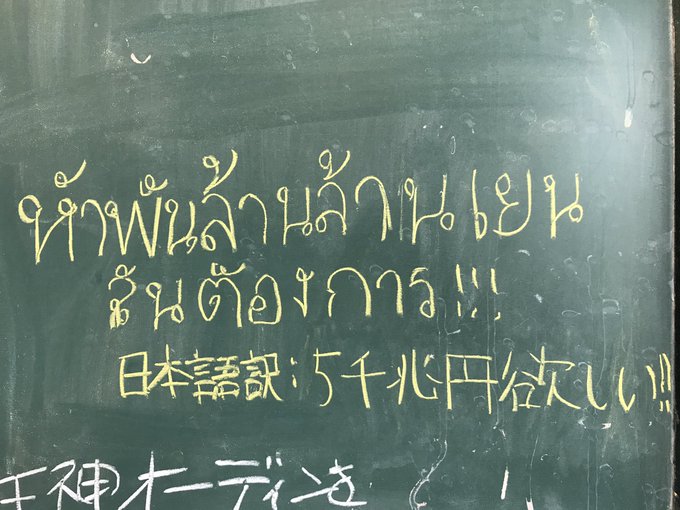 ห้าพันล้านล้านเยน
ฉันต้องการ!!!
日本語訳:5千兆円欲しい!!
神オーディ